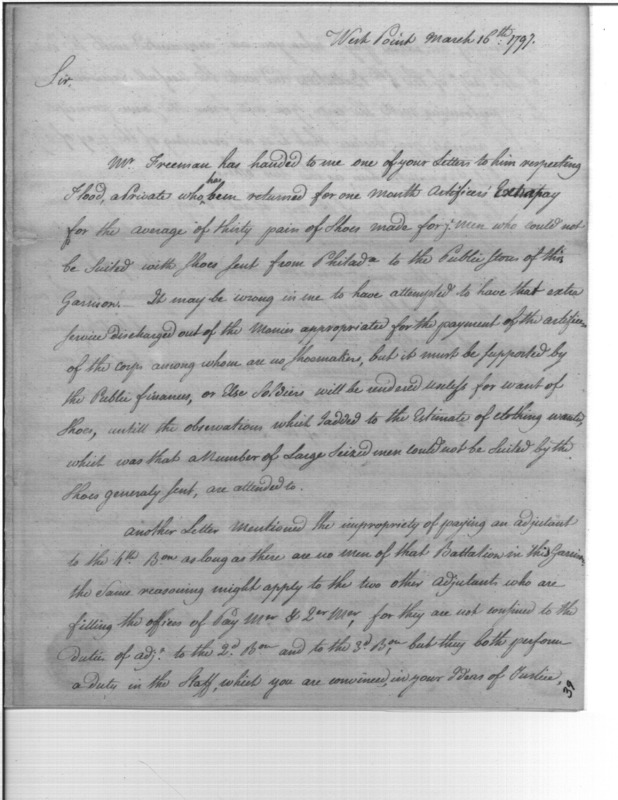 West Point March 16th: 1797.
Sir.
Mr. Freeman has handed to me one of your Letters to him respecting
has
Flood, a Private who, been returned for one month Artificers Extra pay
for the average of thirty pairs of Shoes made for ye. men who could not
be Suited with Shoes Sent from Philada to the Public Store of this
Garrison. It may be wrong in me to have attempted to have that extra
service discharged out of the Monies appropriated for the payment of the artificers
of the corps among whom are no Shoemakers, but it must be supported by
the Public finances, or Else Soldiers will be rendered useless for want of
Shoes, untill the observations which I added to the Estimate of clothing wanted,
which was that a Number of Large Seized men could not be Suited by the
Shoes generaly Sent, are attended to.
another Letter Mentioned the impropriety of paying an adjutant
to the 4th Bon as long as there are no men of that Battalion in this Garrison
the Same reasoning might apply to the two other adjutants who are
filling the offices of Pay Mer & Qer Mer, for they are not confined to the
Duties of adjt. to the 2d Bon and to the 3d Bon, but they both perform
a duty in the Staff, which you are convinced, in your Ideas of Justice,
39